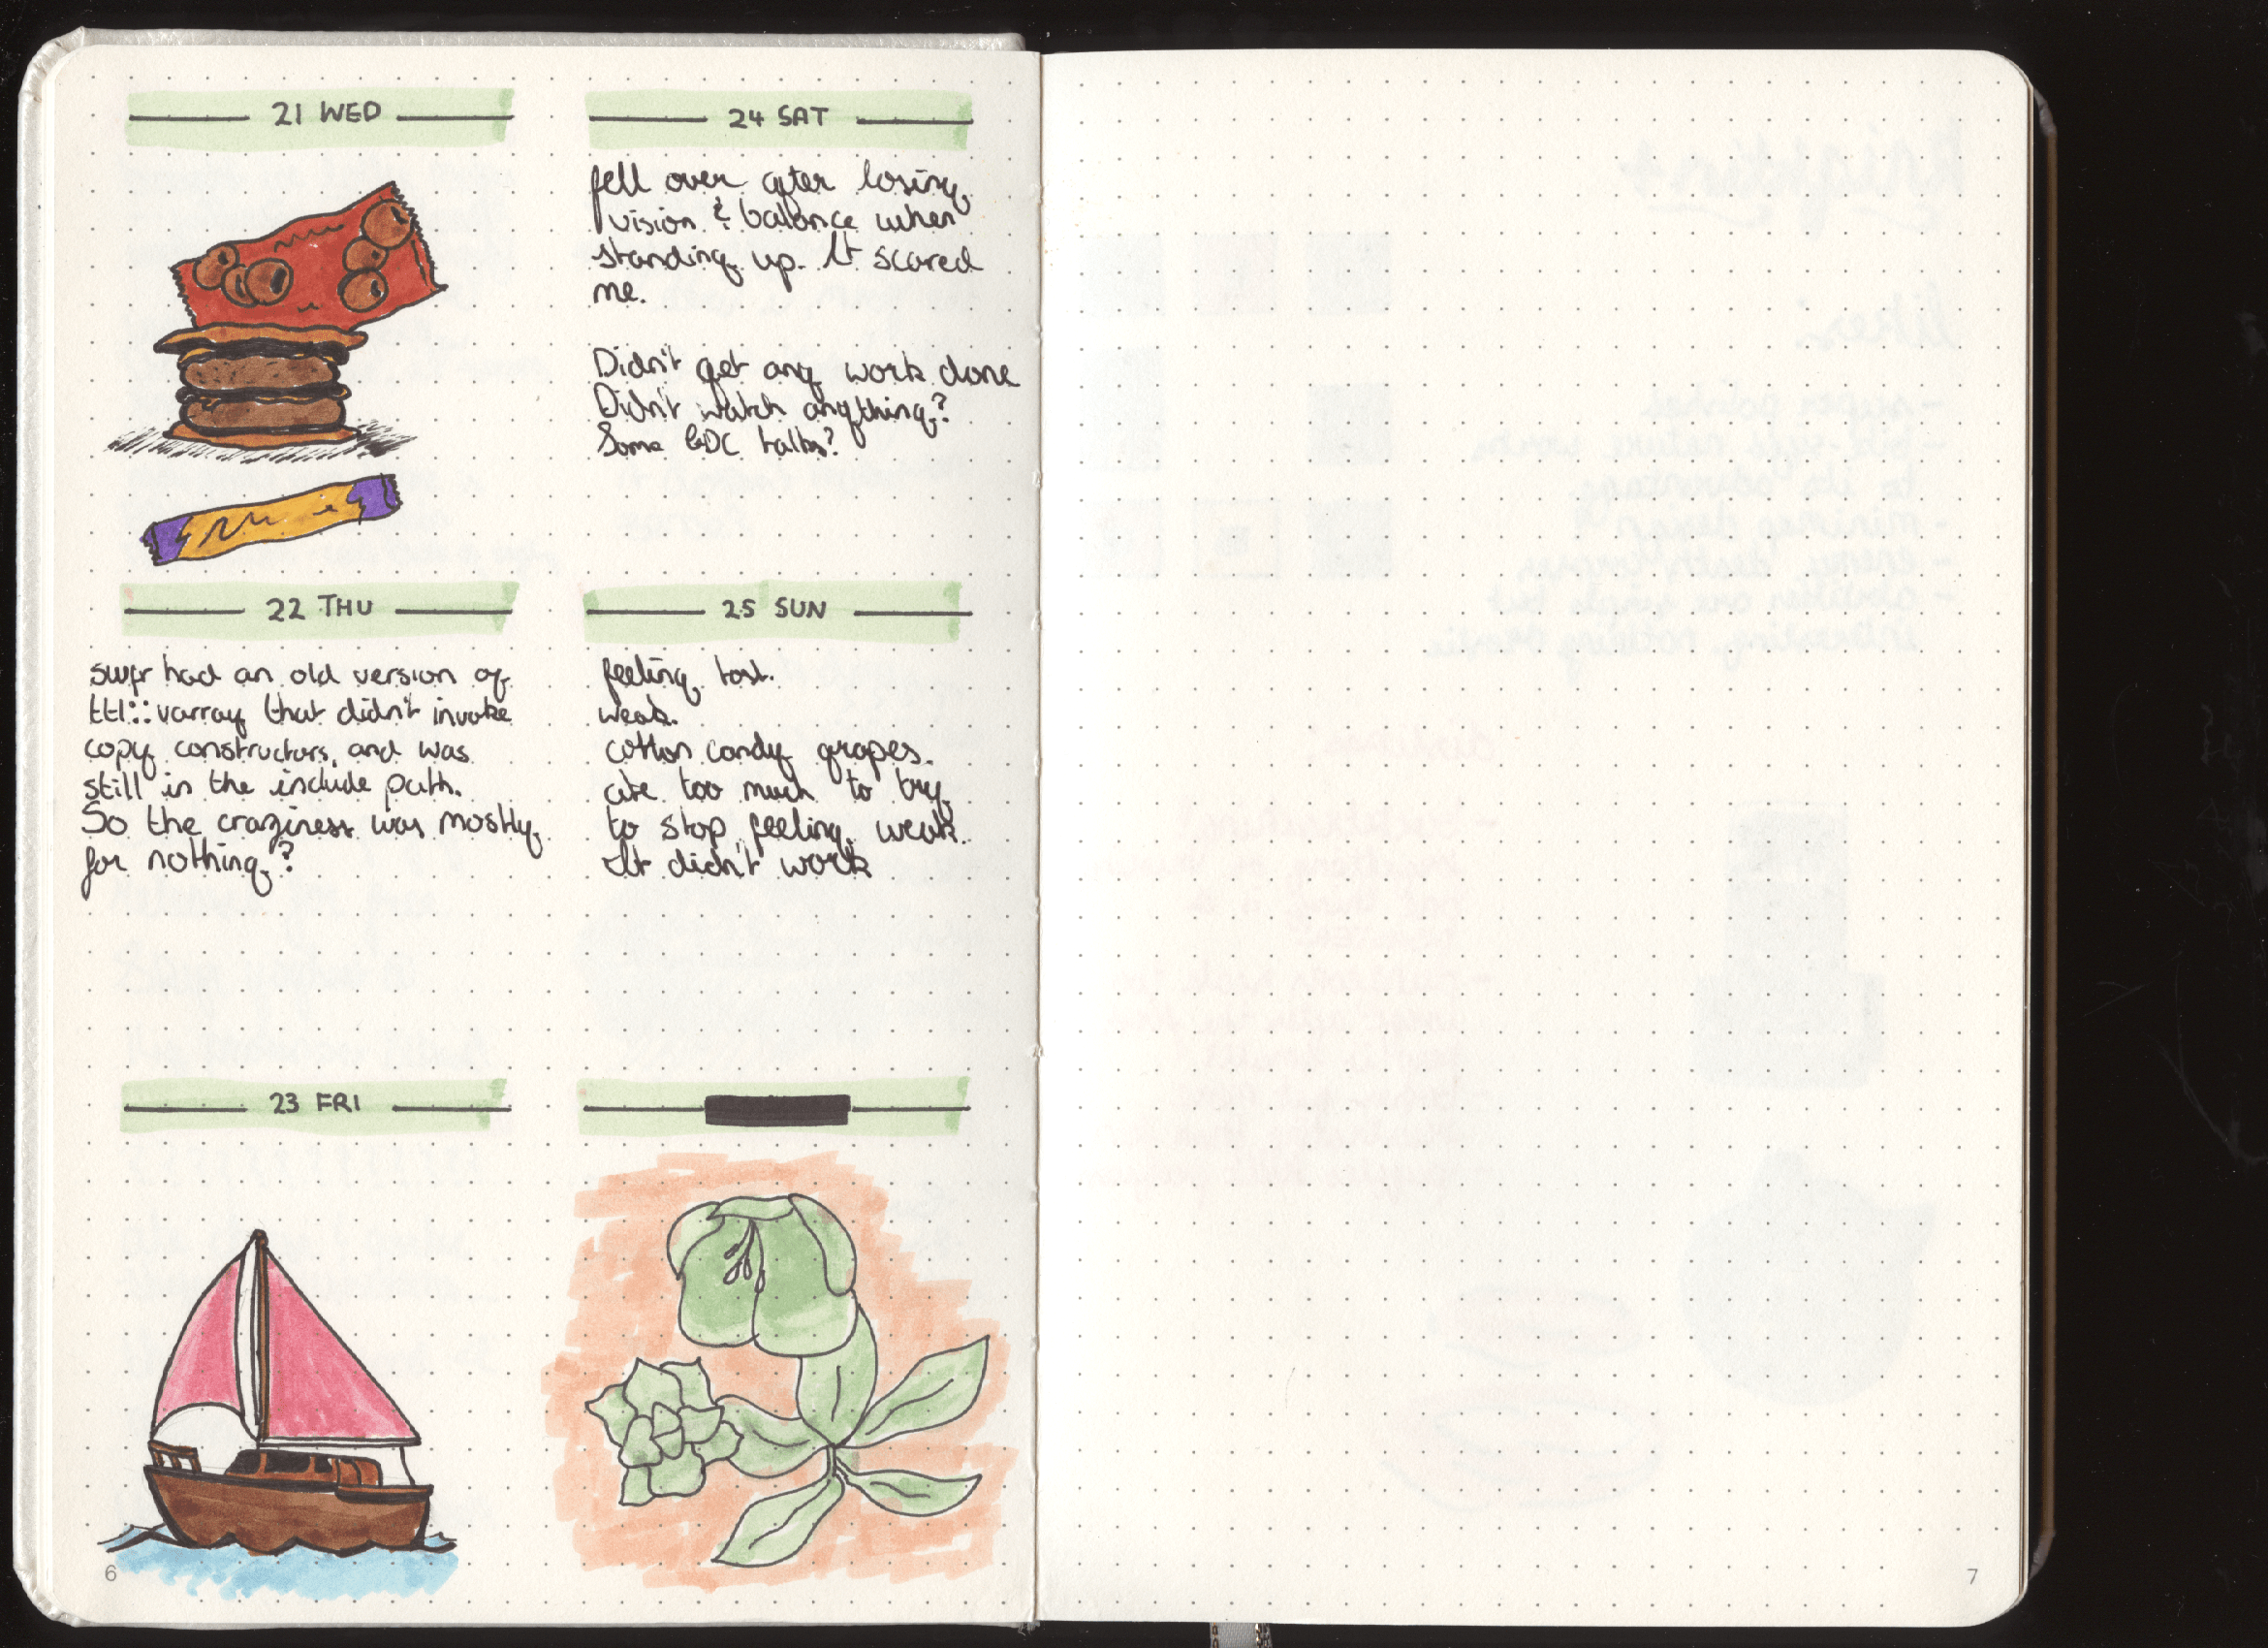 21 WED
22 THU
swfr had an old version of
ttl::varray that didn't invoke
copy constructors, and was
still in the include path.
So the craziness was mostly
for nothing?
23 FRI
6
24 SAT
fell over after losing
vision & balance when
standing up. It scared
me.
Didn't get any work done
Didn't watch anything?
Some GDC talks?
25 SUN
feeling lost.
weak.
cotton candy grapes.
ate too much to try
to stop feeling weak.
It didn't work
7